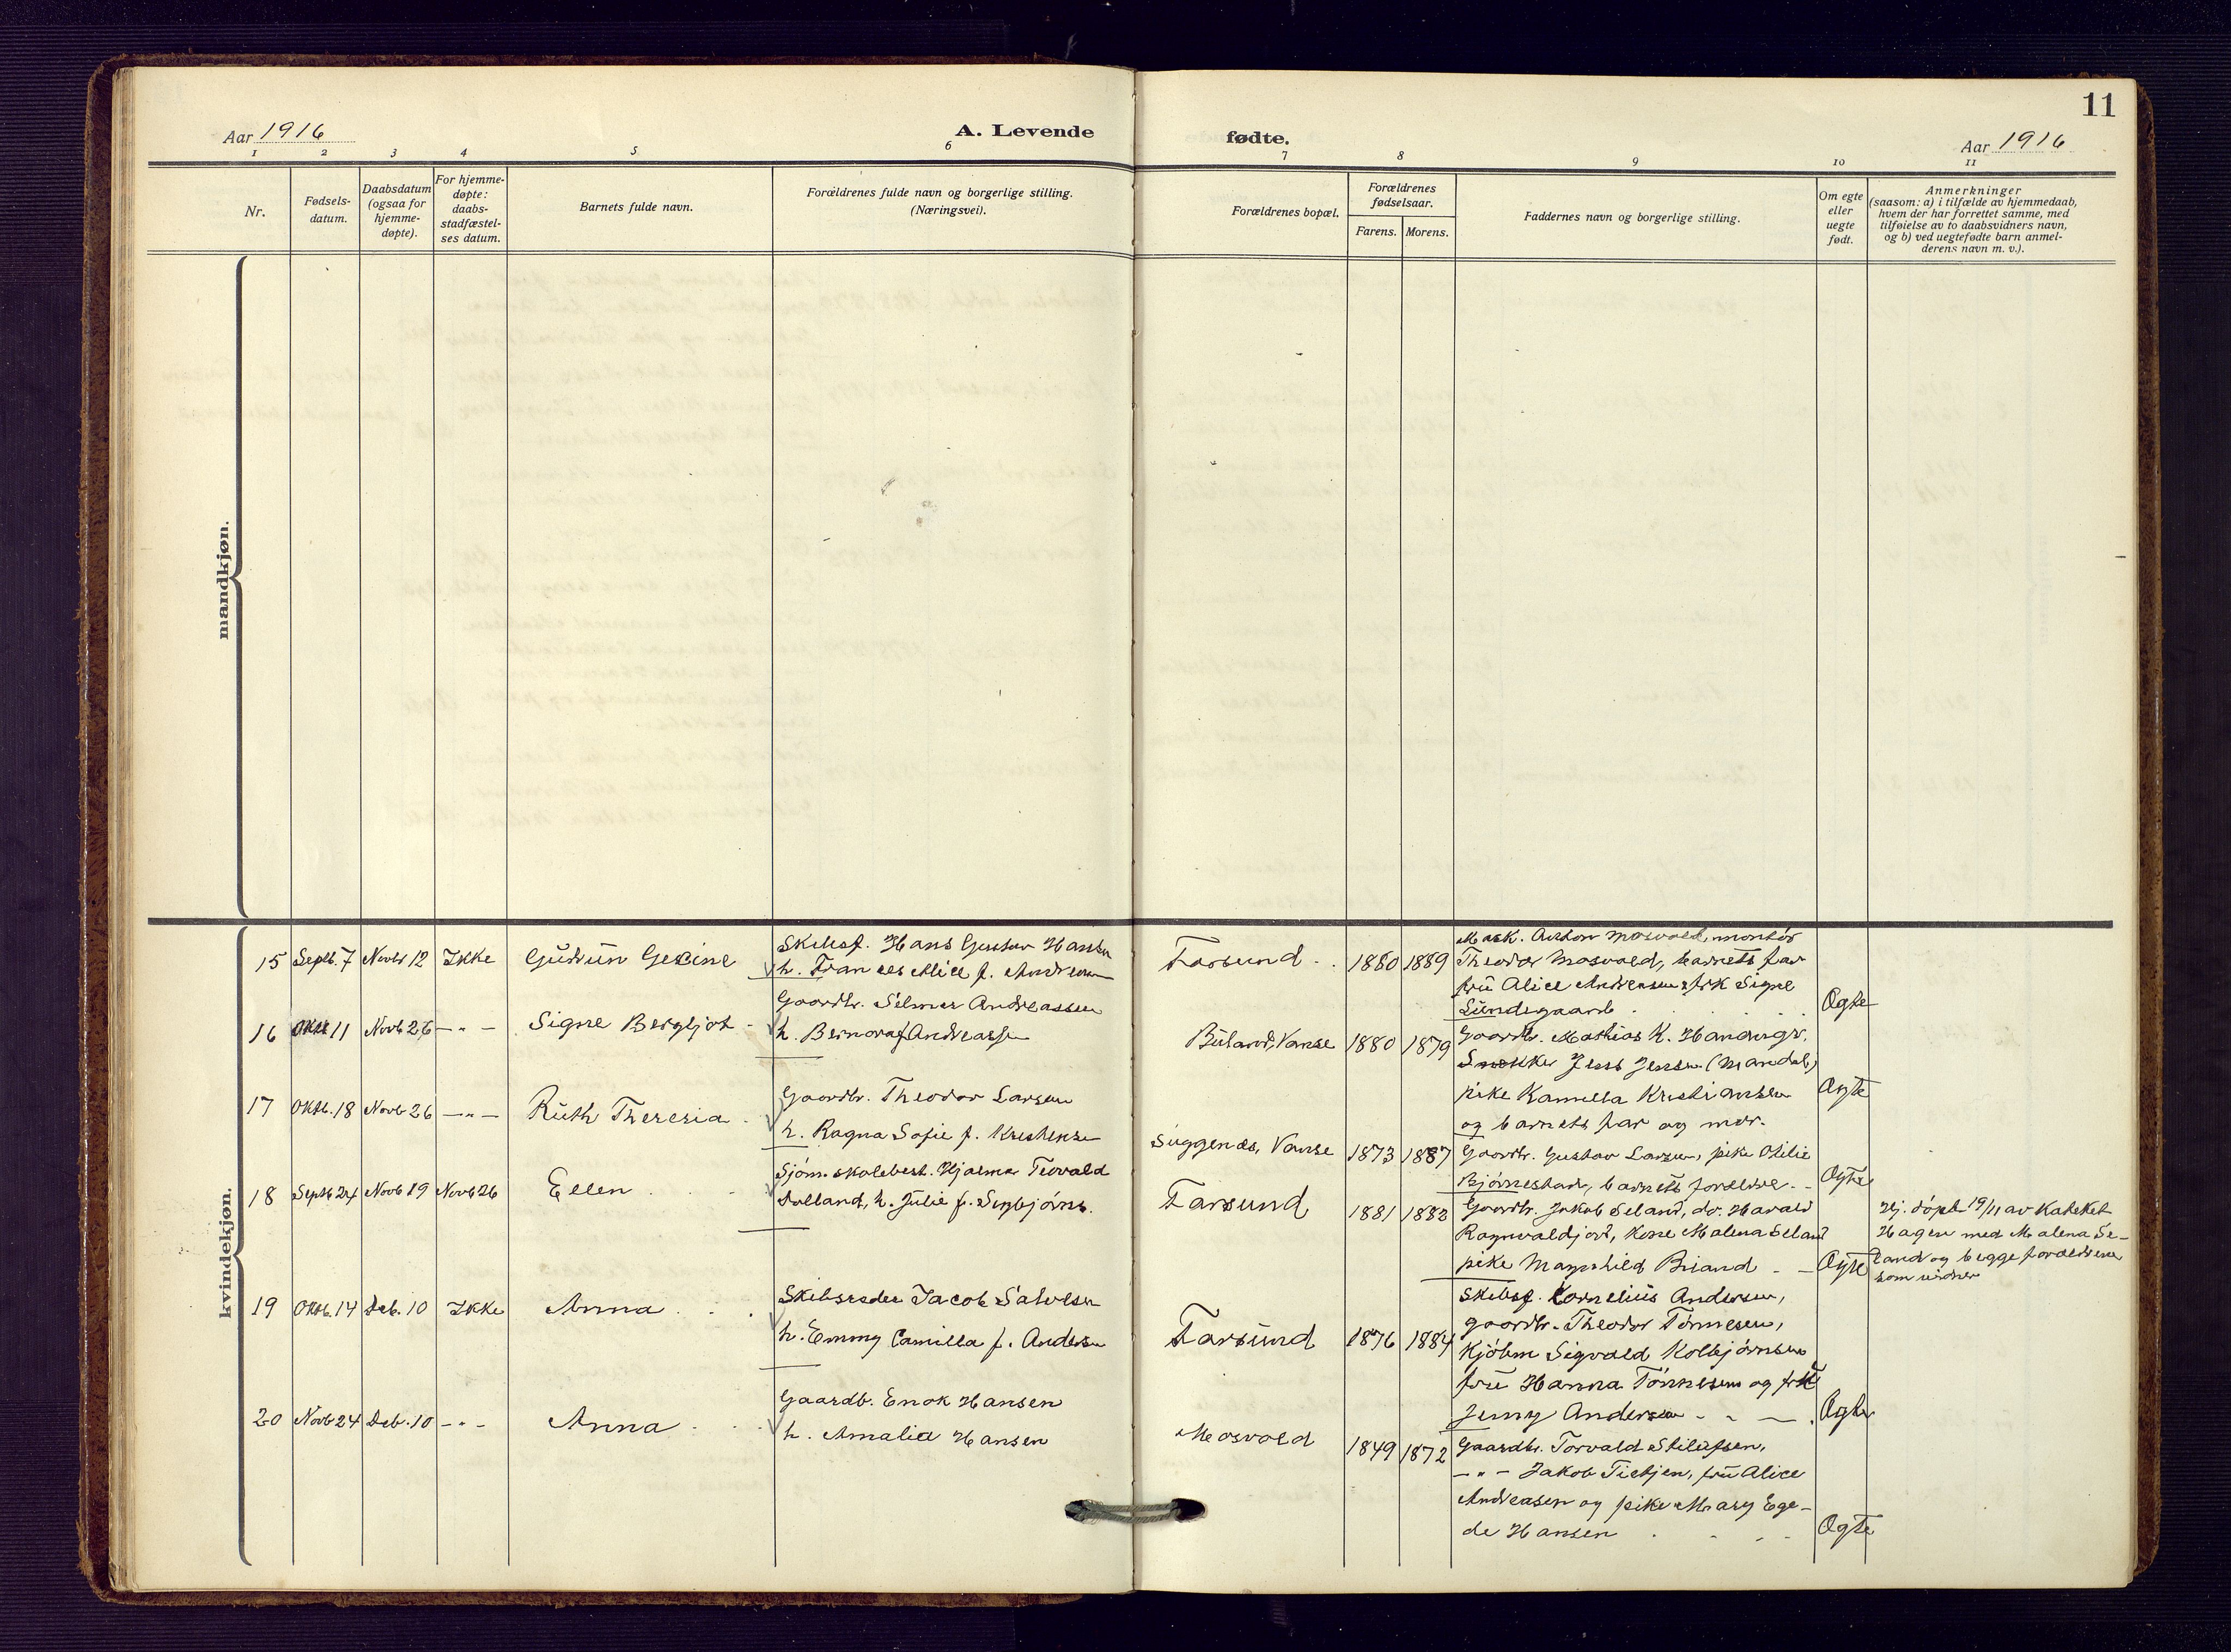 11
Aar 1916
A. Levende
fødte.
Aar 1916
1 2 3 4 5 6 7 8 9 10 11
Nr.
Fødsels-
datum.
Daabsdatum
(ogsaa for
hjemme-
døpte).
For hjemme-
døpte:
daabs-
stadfæstel-
ses datum.
Barnets fulde navn.
Forældrenes fulde navn og borgerlige stilling.
(Næringsvei).
Forældrenes bopæl.
Forældrenes
fødselsaar.
Farens. Morens.
Faddernes navn og borgerlige stilling.
Om egte
eller
uegte
født.
Anmerkninger
(saasom: a) i tilfælde av hjemmedaab,
hvem der har forrettet samme, med
tilføielse av to daabsvidners navn,
og b) ved uegtefødte barn anmel-
derens navn m. v.).
mandkjøn.
kvindekjøn.
15 Septb. 7 Novbr 12 Ikke Gudrun Gesine
Skibsf. Hans Gustav Hansen
h. Frances Alice f. Andreasen
Farsund 1880 1889
Mask. Anton Mosvold, montör
Theodor Mosvold, barnets far
frü Alice Andreasen & frk Signe
Lundegaard
Ægte
16 Oktb 11 Novb 26 - " - Signe Bergljot
Gaardbr. Selmer Andreassen
h. Bernora f. Andreassen
Büland, Vanse 1880 1879
Gaardbr. Mathias K. Handeng
Snekker Jens Jensen (Mandal)
pike Kamilla Kristiansen
og barnets far og mor.
Ægte
17 Oktb. 18 Novb 26 - " - Ruth Theresia
Gaardbr. Theodor Larsen
h. Ragna Sofie f. Kristensen
Suggenæs, Vanse 1873 1887
Gaardbr. Gustav Larsen, pike Otilie
Bjørnestad, barnets forældre.
Ægte
18 Septb 24 Novb 19 Novb 26 Ellen
Sjöm. skolebest. Hjalmar Teovald
Dolland, h. Julie f. Sigbjörns.
Farsund 1881 1883
Gaardbr. Jakob Seland, do. Harald
Ragnvaldjord, kone Malena Seland
pike Magnhild Briand
Ægte
Hj. döpt 19/11 av Kateket
Hagen med Malena Se-
land og begge forældrene
som vidner
19 Oktb. 14 Deb. 10 Ikke Anna
Skibsreder Jacob Salvesen
h. Emmy Camilla f. Andersen
Farsund 1876 1884
Skibsf. Cornelius Andersen,
gaardbr. Theodor Tönnesen,
Kjöbm Sigvald Kolbjörnsen
frü Hanna Tönnesen og frk
Jenny Andersen
Ægte
20 Novb 24 Deb. 10 - " - Anna
Gaardb. Enok Hansen
h. Amalia Hansen
Mosvold 1849 1872
Gaardbr. Torvald Stilufsen,
- " - Jakob Tietjen, frü Alice
Andreasen og pike Mary Ege-
de Hansen
Ægte